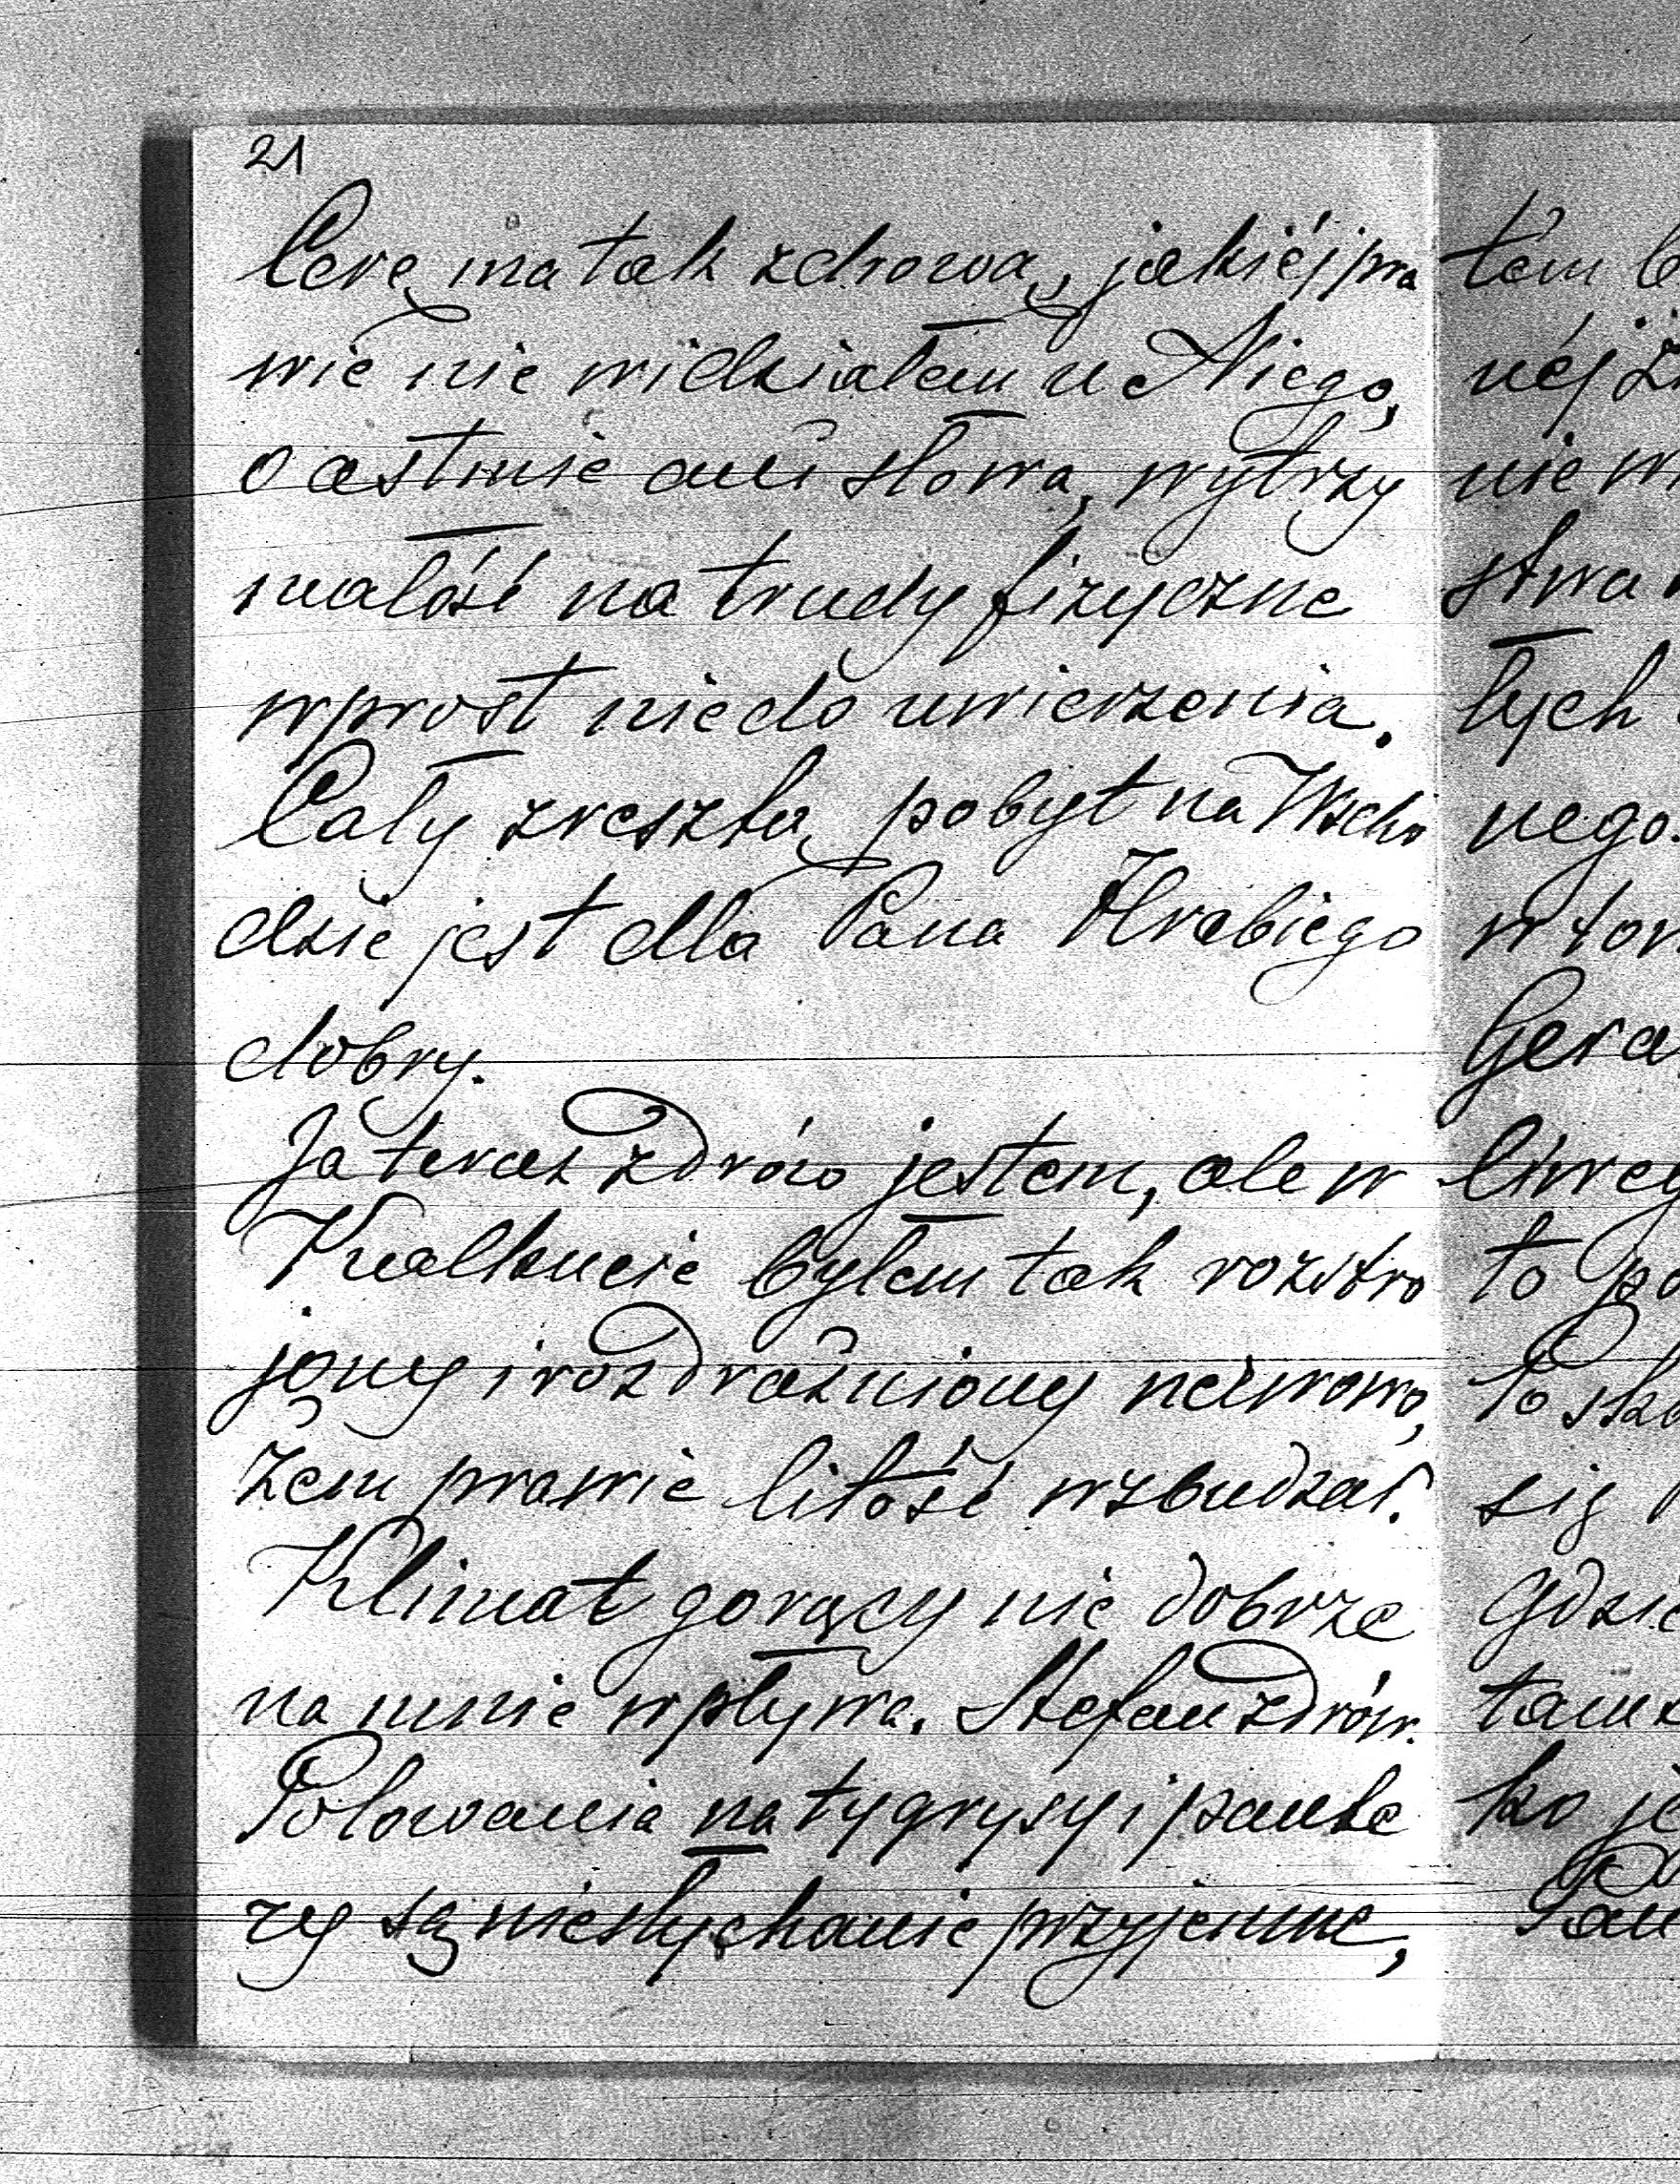 21
Cerę ma tak zdrową, jakiéj pra
wie nie widziałem u Niego,
o astmie ani słowa, wytrzy
małość na trudy fizyczne
wprost niedo uwierzenia.
Cały zresztą pobyt na Wscho
dzie jest dla Pana Hrabiego
dobry.
Ja teraz zdrów jestem, ale w
Kalkucie byłem tak rozstro
jony i rozdrażniony nerwowo,
żem prawie litość wzbudzał.
Klimat gorący nie dobrze
na mnie wpływa. Stefan zdrów.
Polowania na tygrysy i pante
ry są niesłychanie przyjemne,
tém
néj
nie
stwa
łych
nego.
to
się
ko